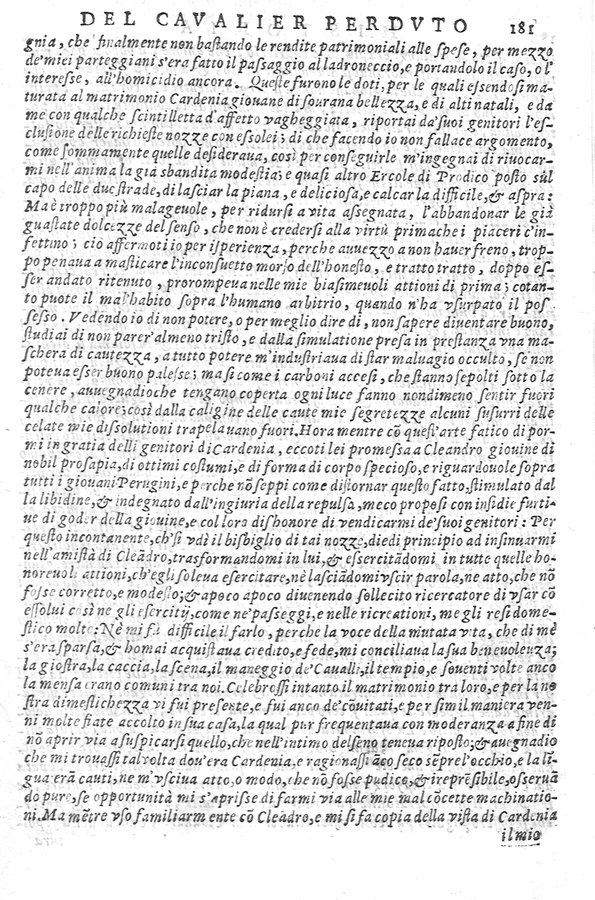 DEL CAVALIER PERDVTO 181
gnia, che finalmente non bastando le rendite patrimoniali alle spese, per mezzo
de'miei parteggiani s'era fatto il passaggio al ladroneccio, e portandolo il caso, o l'
interesse, all'homicidio ancora. Queste furono le doti, per le quali essendosi ma-
turata al matrimonio Cardenia giouane di sourana bellezza, e di alti natali, e da
me con qualche scintilletta d'affetto vagheggiata, riportai da'suoi genitori l'es-
clusione delle richieste nozze con essolei; di che facendo io non fallace argomento,
come sommamente quelle desideraua, così per conseguirle m'ingegnai di riuocar-
mi nell'anima la già sbandita modestia; e quasi altro Ercole di Prodico posto sùl
capo delle due strade, di lasciar la piana, e deliciosa, e calcar la difficile, & aspra:
Ma è troppo più malageuole, per ridursi a vita assegnata, l'abbandonar le già
guastate dolcezze del senso, che non è credersi alla virtù prima che i piaceri c'in-
fettino; ciò affermoti io per isperienza, perche auuezzo a non hauer freno, trop-
po penaua a masticare l'inconsueto morso dell'honesto, e tratto tratto, doppo es-
ser andato ritenuto, prorompeua nelle mie biasimeuoli attioni di prima; cotan-
to puote il mal'habito sopra l'humano arbitrio, quando n'ha vsurpato il pos
sesso. Vedendo io di non potere, o per meglio dire di, non sapere diuentare buono,
studiai di non parer'almeno tristo, e dalla simulatione presa in prestanza vna ma-
schera di cautezza, a tutto potere m'industriaua di star maluagio occulto, se non
poteua esser buono palese; ma sì come i carboni accesi, che stanno sepolti sotto la
cenere, auuegnadioche tengano coperta ogni luce fanno nondimeno sentir fuori
qualche calore; così dalla caligine delle caute mie segretezze alcuni susurri delle
celate mie dissolutioni trapelauano fuori. Hora mentre cõ quest'arte fatico di por-
mi in gratia delli genitori di Cardenia, eccoti lei promessa a Cleandro giouine di
nobil prosapia, di ottimi costumi, e di forma di corpo specioso, e riguardouole sopra
tutti i giouani Perugini, e perche nõ seppi come distornar questo fatto, stimulato dal
la libidine, & indegnato dall'ingiuria della repulsa, meco proposi con insidie furti-
ue di goder della giouine, e col loro dishonore di vendicarmi de'suoi genitori: Per
questo incontanente, ch'si vdì il bisbiglio di tai nozze, diedi principio ad insinuarmi
nell'amistà di Cleãdro, trasformandomi in lui, & essercitãdomi in tutte quelle ho-
noreuoli attioni, ch'egli soleua esercitare, nè lasciãdomi vscir parola, ne atto, che nõ
fosse corretto, e modesto; & apoco apoco diuenendo sollecito ricercatore di vsar cõ
essolui così ne gli esercitij, come ne'passeggi, e nelle ricreationi, me gli resi dome-
stico molto: Nè mi fù difficile il farlo, perche la voce della mutata vita, che di mè
s'era sparsa, & homai acquistaua credito, e fede, mi conciliaua la sua beneuolenza;
la giostra, la caccia, la scena, il maneggio de'Caualli, il tempio, e souenti volte anco
la mensa erano comuni tra noi. Celebrossi intanto il matrimonio tra loro, e per la no
stra dimestichezza vi fui presente, e fui anco de'cõuitati, e per simil maniera ven-
ni molte fiate accolto in sua casa, la qual pur frequentaua con moderanza a fine di
nõ aprir via a suspicarsi quello, che nell'intimo del seno teneua riposto; & auegnadio
che mi trouassi talvolta dou'era Cardenia, e ragionassi ãco seco sẽpre l'occhio, e la lĩ-
gua erã cauti, ne m'vsciua atto, o modo, che nõ fosse pudico, & irreprẽsibile, osseruã
do pure, se opportunità mi s'aprisse di farmi via alle mie mal cõcette machinatio-
ni. Ma mẽtre vso familiarmente cõ Cleãdro, e mi si fa copia della vista di Cardenia
il mio